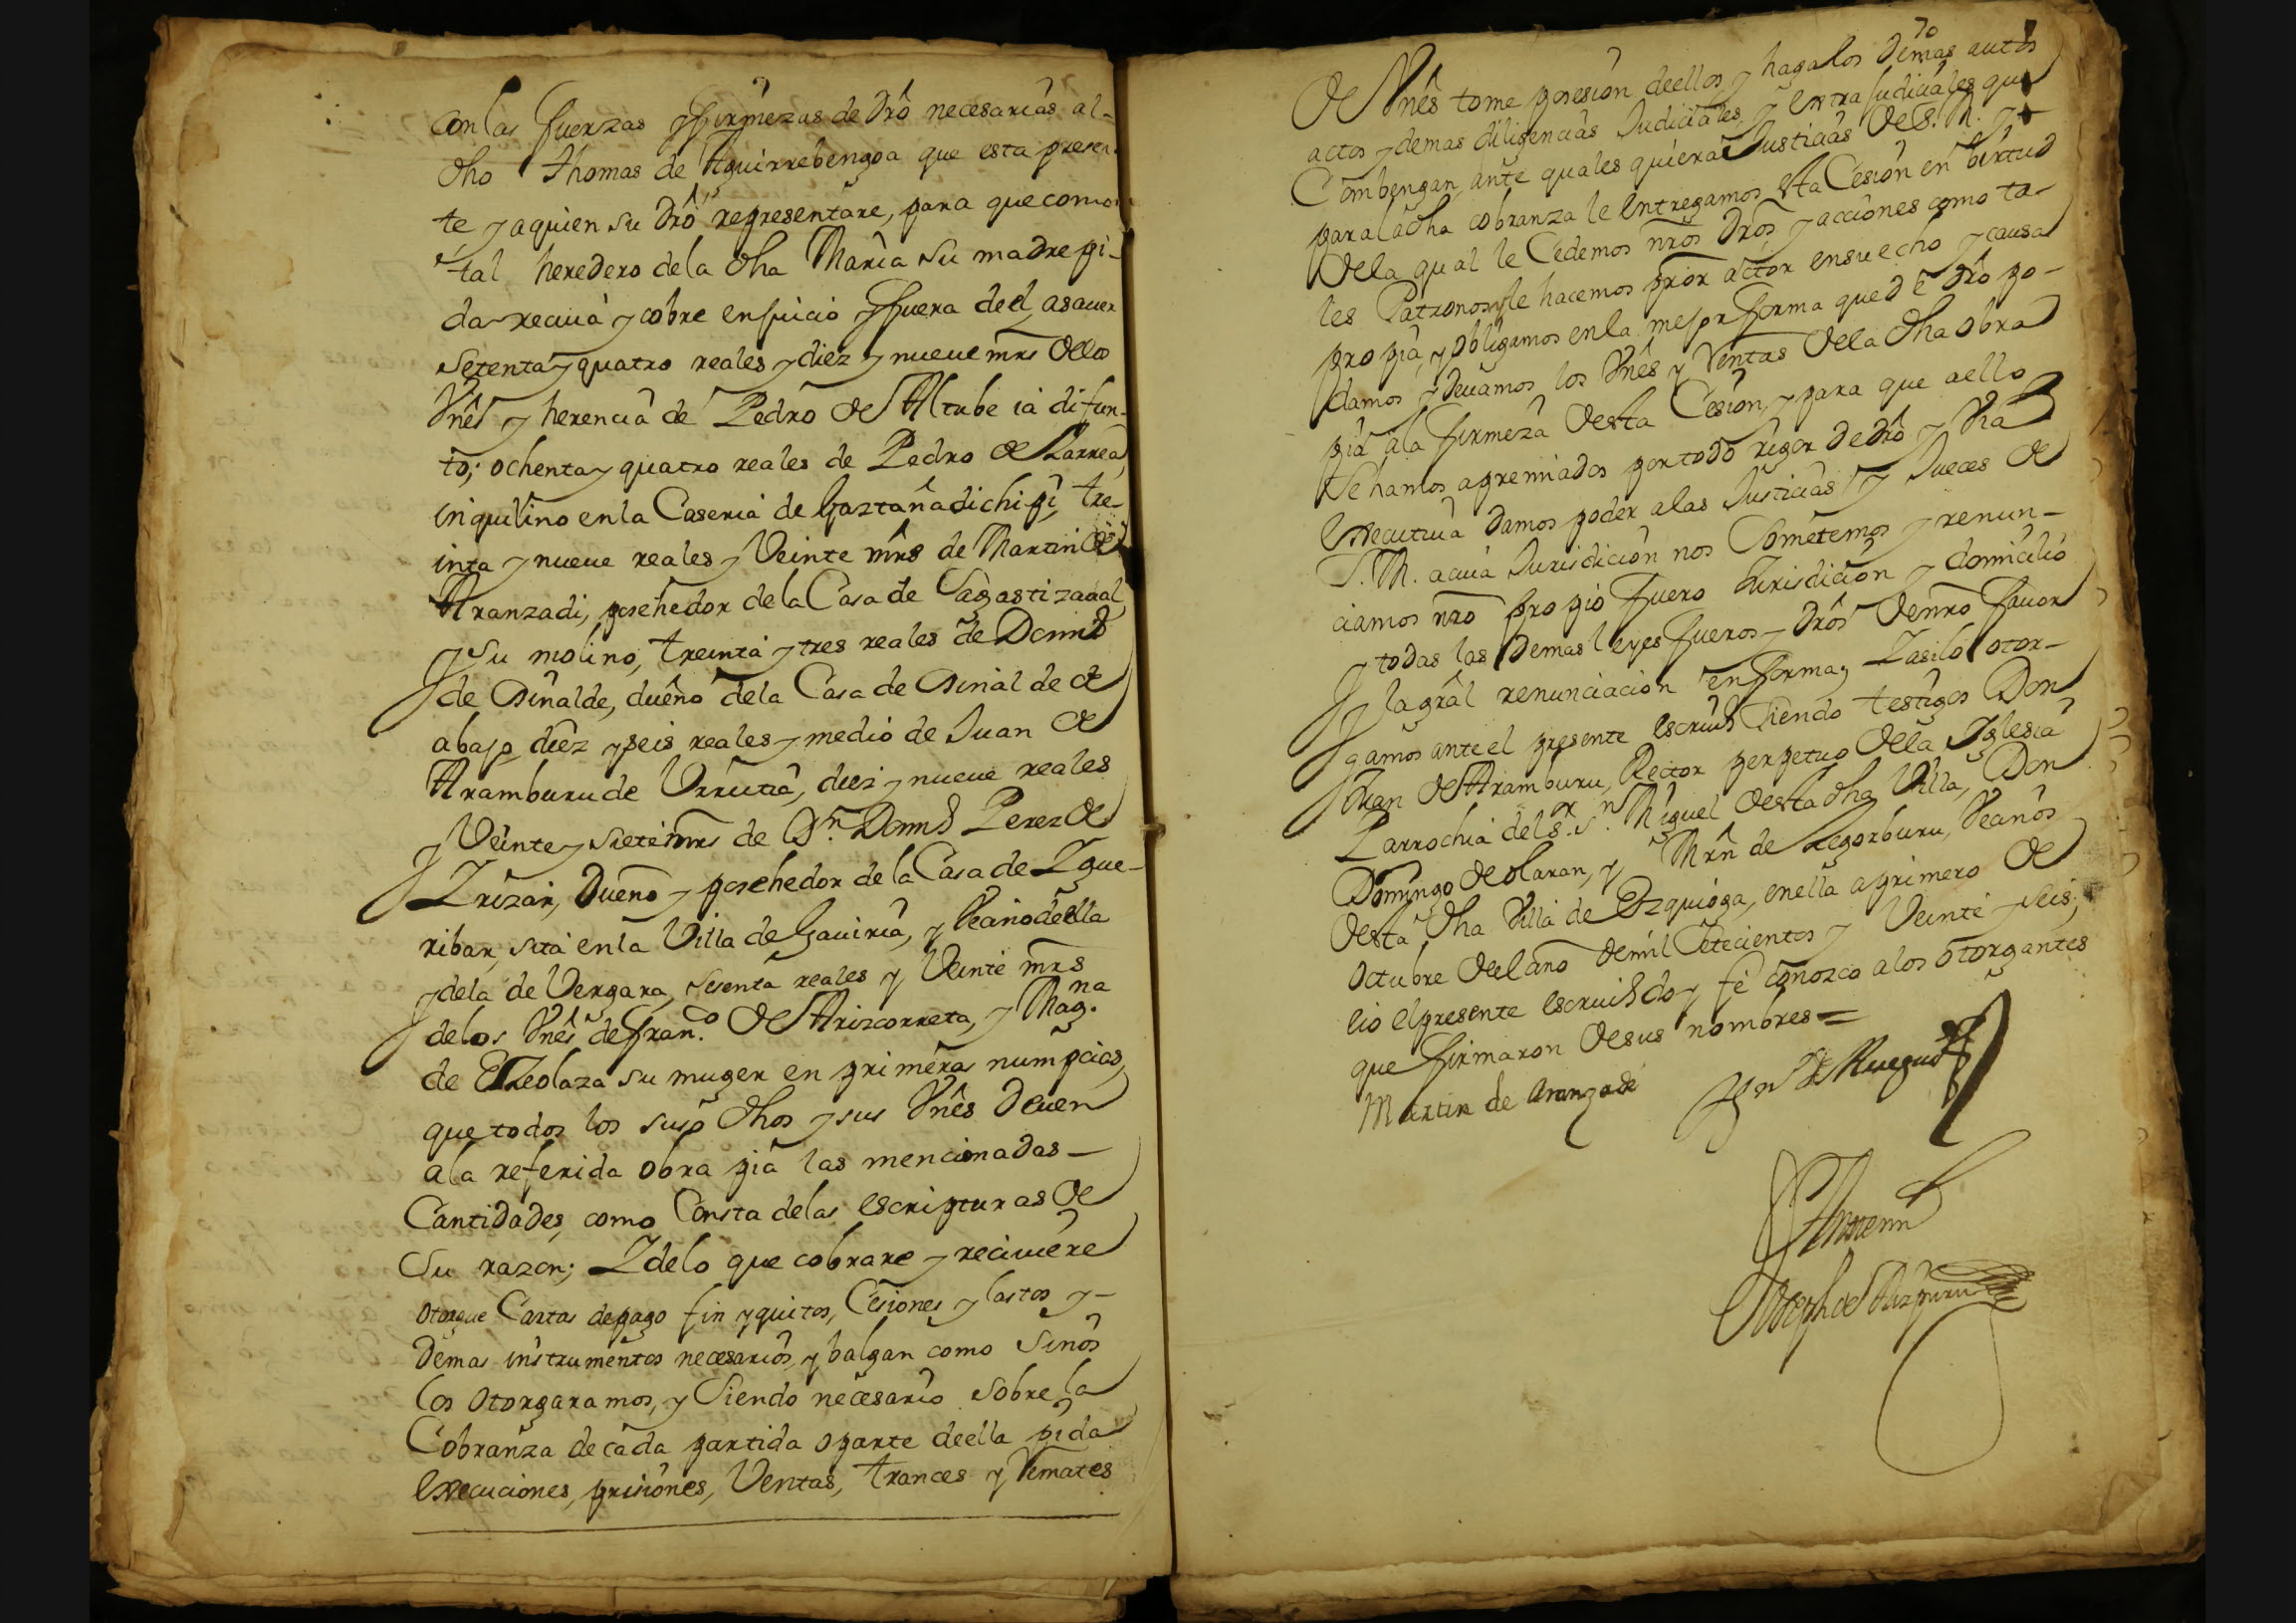 Con las fuerzas y firmezas de dro necesarias al-
dho Thomas de Aguirrebengoa que esta presen-
te y a quien su dro representare, para que como
tal heredero dela dha Maria su madre pi-
da reciua y cobre en juicio y fuera de el, asauer
setenta y quatro reales y diez y nueue mrs de los
Vnês y herencia de Pedro de Altube ia difun-
to; ochenta y quatro reales de Pedro de Larrea
inquilino en la Caseria de Gaztañadichipi, tre-
inta y nueue reales y Veinte mrs de Martin de
Aranzadi, posehedor de la Casa de Sagastizaual
y su molino, treinta y tres reales de Domingo
de Oinalde, dueño dela Casa de Oinalde de
abajo, diez y seis reales y medio de Juan de
Aramburu de Urrutia, diez y nueue reales
y Veinte y siete mrs de Dn Domgo Perez de
Irizar, Dueño y posehedor de la Casa de Igue-
ribar, sita en la Villa de Gauiria, y Vecino de ella
y dela de Vergara, sesenta reales y Veinte mrs
delos Vnês de Franco de Arizcorreta, y Magna
de Elzolaza su muger en primeras numpcias,
que todos los suso dhos y sus Vnês deuen
ala referida obra pia las mencionadas-
Cantidades, como Consta delas escripturas de
Su razon; Y delo que cobrare y reciuiere
otorgue Cartas de pago fin y quitos, Cesiones y lastos y-
demas instrumentos necesarios, y balgan como si nos
los otorgaramos, y Siendo necesario sobre la
Cobranza de cada partida o parte de ella pida
execuciones, prisiones, Ventas, trances y Remates
70
de Vnês tome posesion de ellos, y haga los demas autos
actos y demas diligencias Judiciales, y extrajudiciales que
Combengan, ante quales quiera Justicias de S. M. y
para la dha cobranza le entregamos esta Cesion en birtud
dela qual le Cedemos nros dros, y acciones como ta-
les Patronos, y le hacemos pror actor en su echo y causa
propia, y obligamos en la mejor forma que de dro po-
damos y deuamos los Vnês y Rentas dela dha obra
pia ala firmeza desta Cesion, y para que a ello
Se hamos apremiados por todo rigor de dro y Via
executiua damos poder a las Justicias y Jueces de
S. M. a cuia Jurisdicion nos Sometemos y renun-
ciamos nro propio fuero Jurisdicion y domicilio
y todas las demas leyes fueros y dros de nro fauor
y la gral renunciacion en forma, Y asi lo otor-
gamos ante el presente escriuo Siendo testigos Don
Juan de Aramburu, Rector perpetuo dela Iglesia
Parrochia del Sr Sn Miguel desta dha Villa, Don
Domingo de olaran, y Mrn de Legorburu, Vecinos
desta dha Villa de Ezquioga, en ella a primero de
octubre del año de mil Setecientos y Veinte y seis;
e io el presente escriuo doy fe conozco a los otorgantes
que firmaron de sus nombres=
Martin de Aranzadi
Ante mi
Joseph de Aizpuru